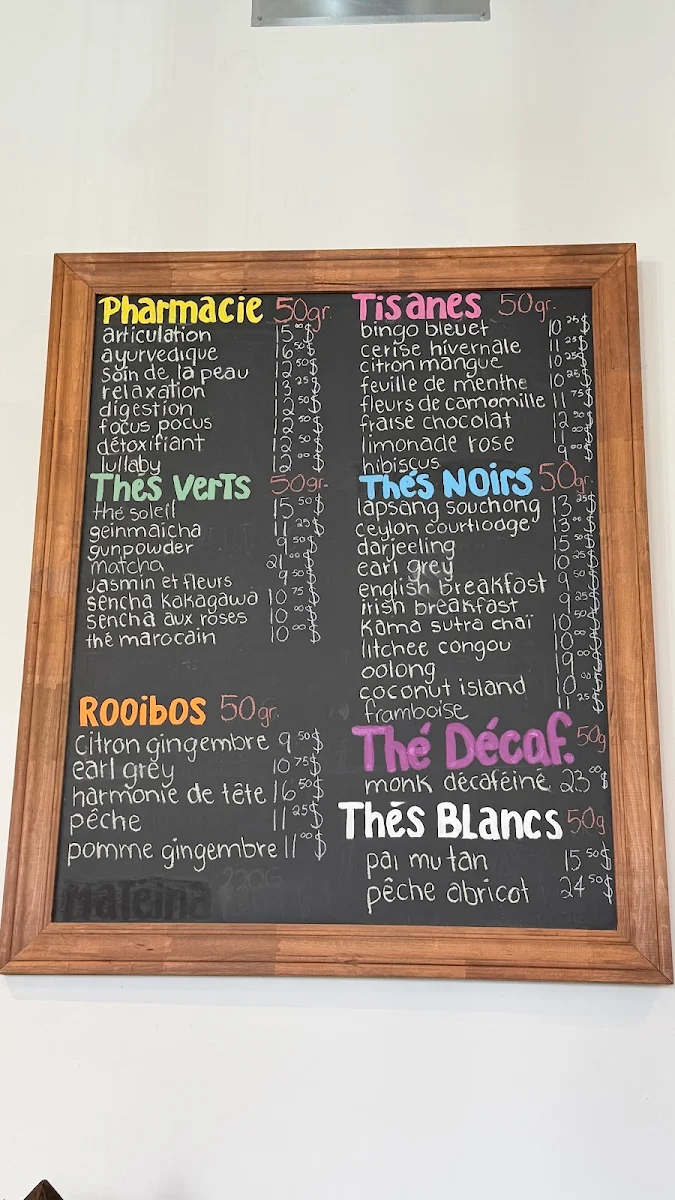 Pharmacie 50gr.
articulation 15.00$
ayurvedique 16.50$
soin de la peau 12.50$
relaxation 13.25$
digestion 12.50$
focus pocus 12.50$
détoxifiant 12.50$
lullaby 12.00$
Thés verts 50gr.
thé soleil 15.50$
geinmaicha 11.25$
gunpowder 9.50$
matcha 21.00$
Jasmin et fleurs 9.50$
sencha Kakagawa 10.75$
sencha aux roses 10.00$
thé marocain 10.00$
Rooibos 50gr.
Citron gingembre 9.50$
earl grey 10.75$
harmonie de tête 16.50$
pêche 11.25$
pomme gingembre 11.00$
Mateina
Tisanes 50gr.
bingo bleuet 10.25$
cerise hivernale 11.25$
citron mangue 10.25$
feuille de menthe 10.25$
fleurs de camomille 11.75$
fraise chocolat 12.50$
limonade rose
hibiscus
Thés Noirs 50gr.
lapsang souchong 13.25$
ceylon courtlodge 13.00$
darjeeling 15.50$
earl grey 10.25$
english breakfast 9.50$
irish breakfast 9.25$
Kama sutra chai 10.50$
litchee congou
oolong
coconut island
framboise 11.25$
Thé Décaf. 50g
monk décaféiné 23.00$
Thés Blancs 50g
pai mu tan 15.50$
pêche abricot 24.50$